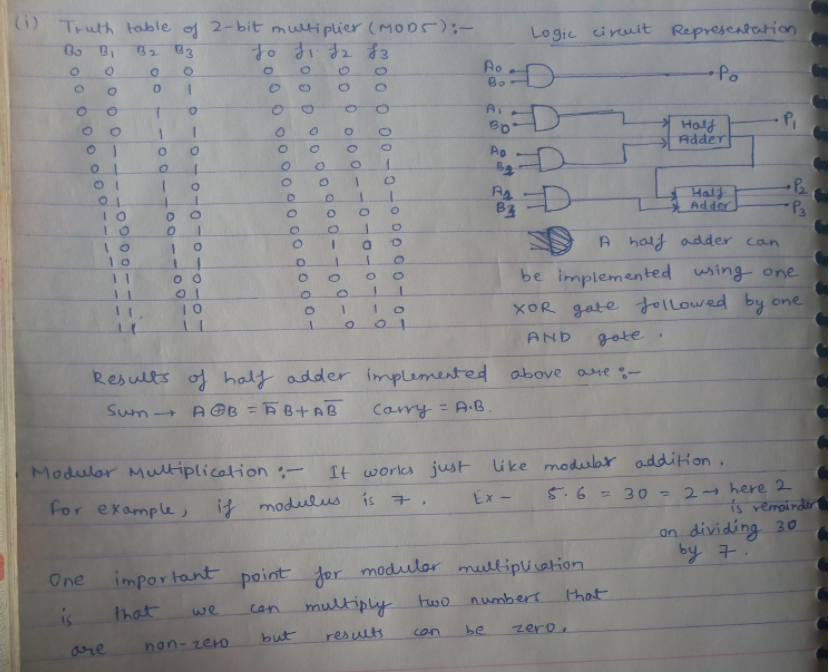 (i) Truth table of 2-bit multiplier (MOD5):-
Logic circuit Representation
B0 B1 B2 B3 f0 f1 f2 f3
0 0 0 0 0 0 0 0
0 0 0 1 0 0 0 0
0 0 1 0 0 0 0 0
0 0 1 1 0 0 0 0
0 1 0 0 0 0 0 0
0 1 0 1 0 0 0 1
0 1 1 0 0 0 1 0
0 1 1 1 0 0 1 1
1 0 0 0 0 0 0 0
1 0 0 1 0 0 1 0
1 0 1 0 0 1 0 0
1 0 1 1 0 1 1 0
1 1 0 0 0 0 0 0
1 1 0 1 0 0 1 1
1 1 1 0 0 1 1 0
1 1 1 1 1 0 0 1
A0
B0
P0
A1
B0
Half
Adder
P1
A0
Half
Adder
P2
P3
A half adder can
be implemented using one
XOR gate followed by one
AND gate.
Results of half adder implemented above are :-
Sum → A⊕B = A̅B + AB̅ Carry = A.B.
Modular Multiplication :- It works just like modular addition.
For example, if modulus is 7. Ex - 5.6 = 30 = 2 → here 2
is remainder
on dividing 30
by 7.
One important point for modular multiplication
is that we can multiply two numbers that
are non-zero but results can be zero.